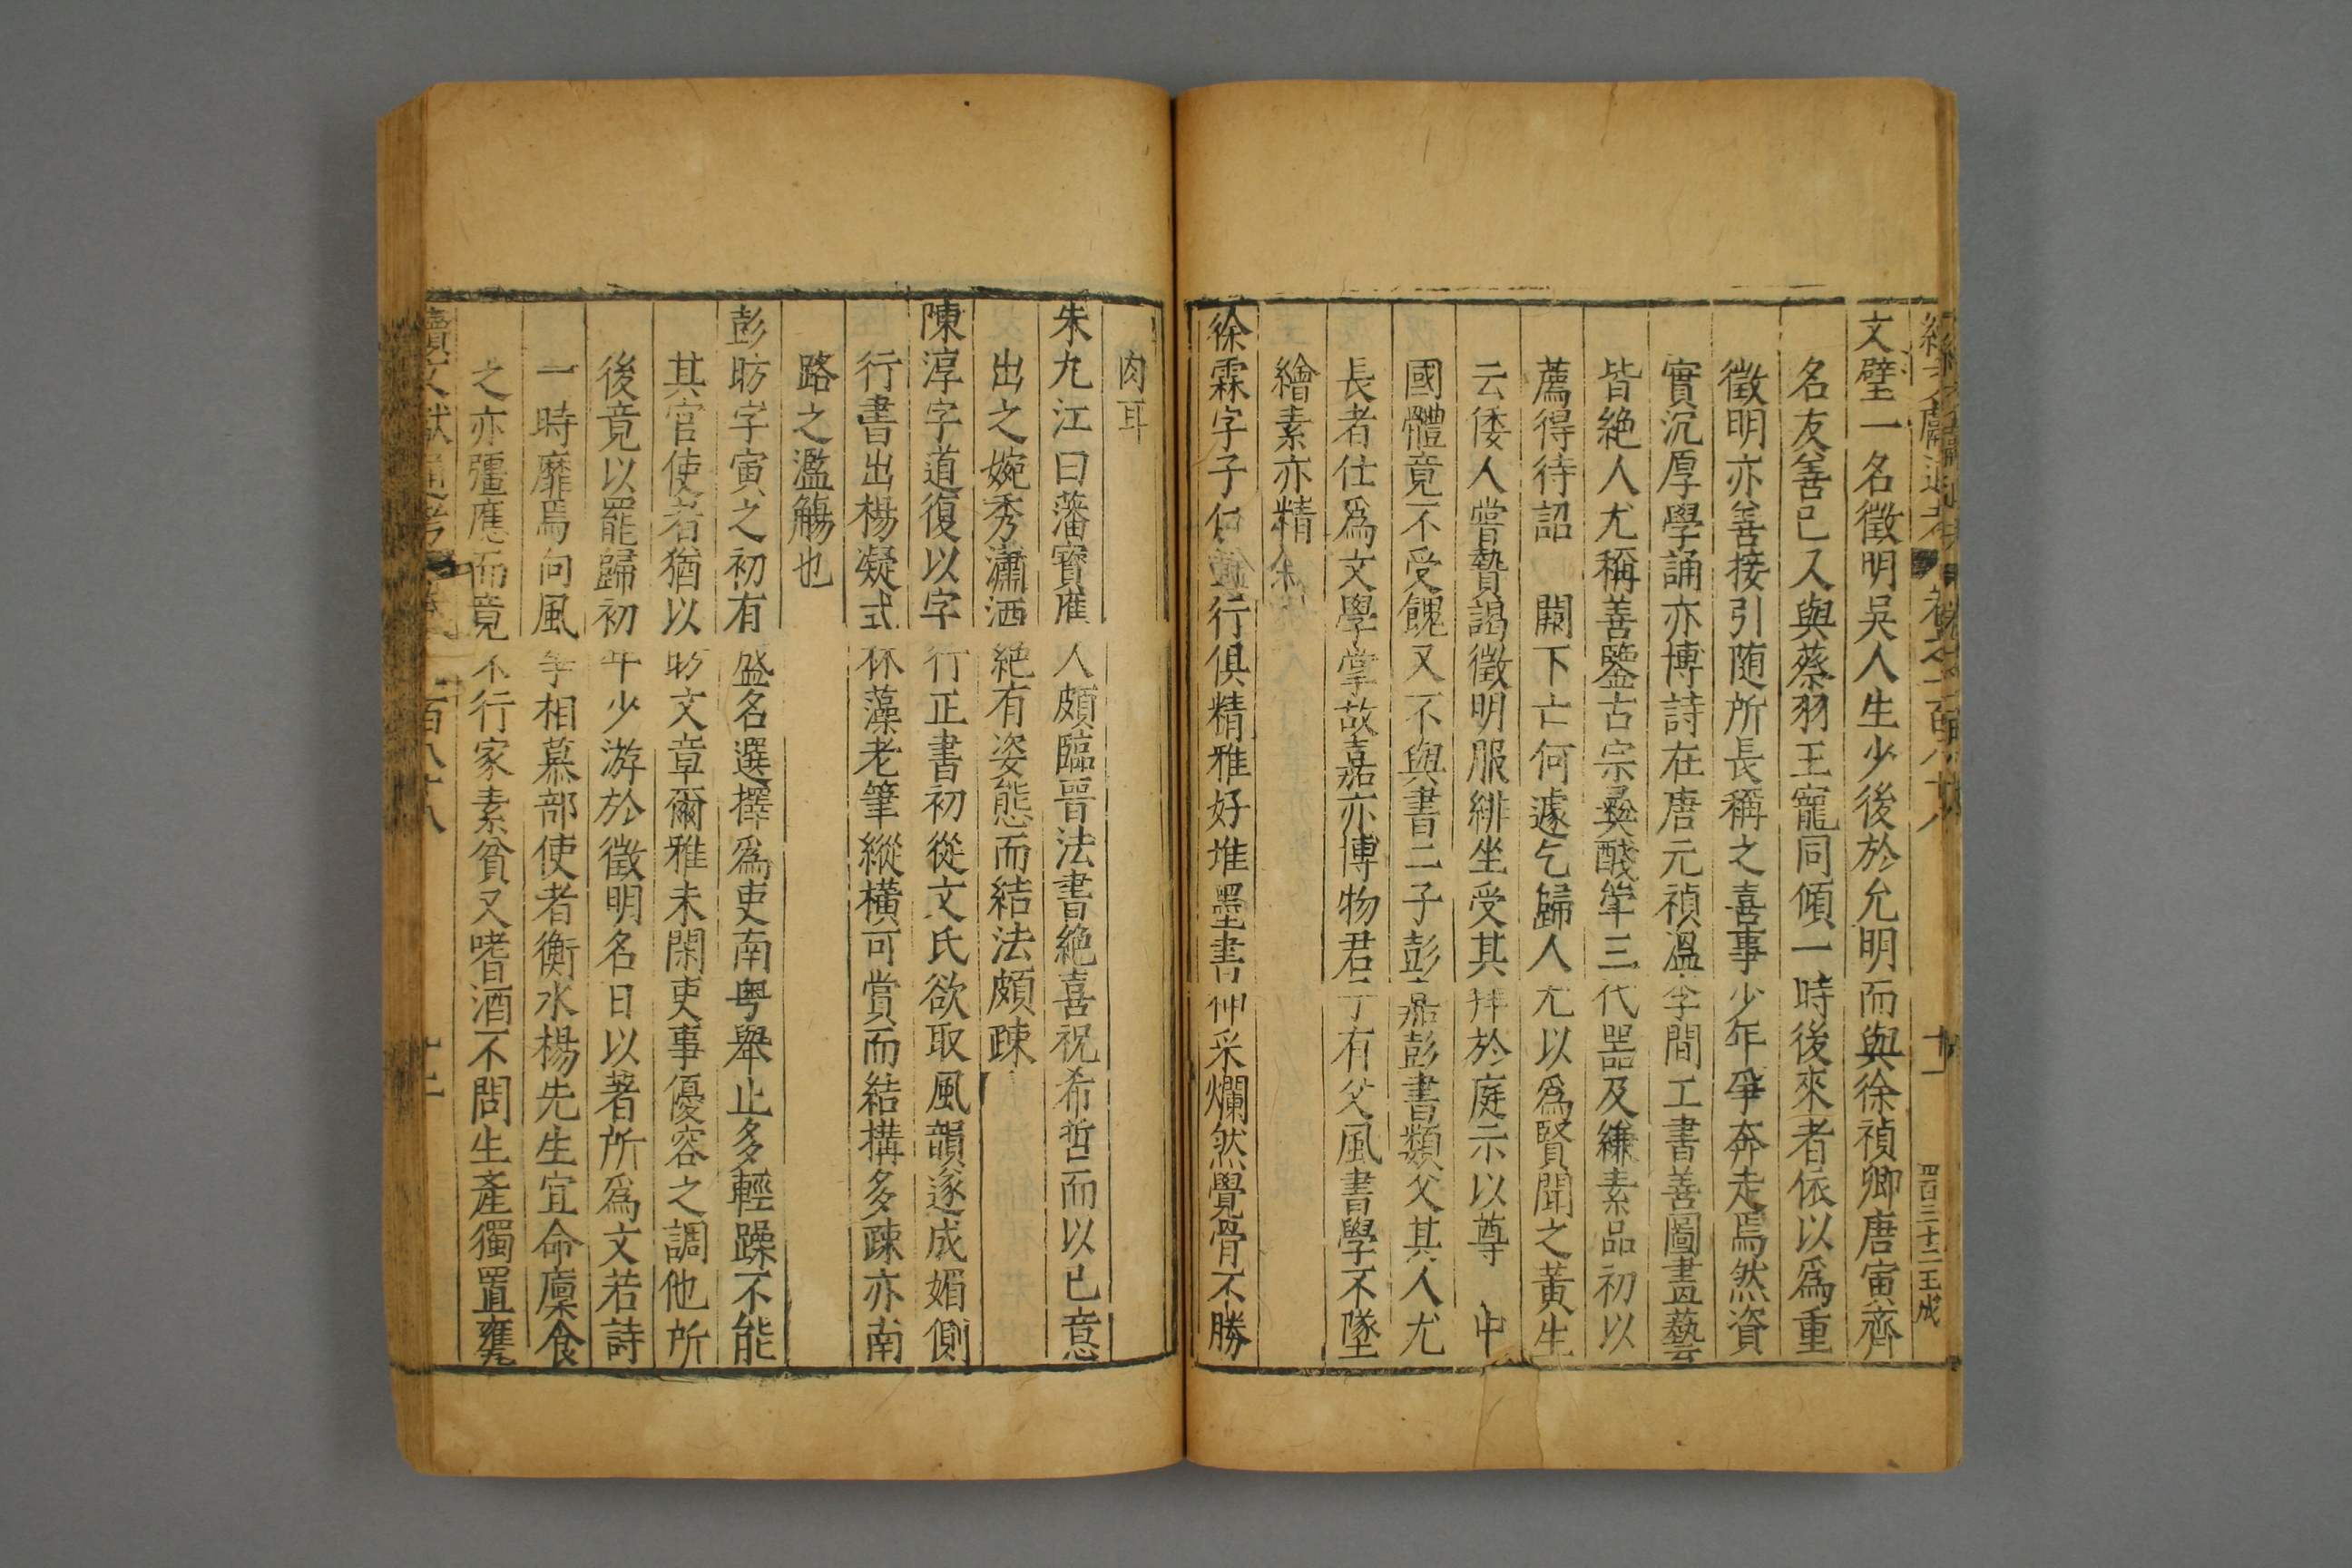 續文獻通考 卷之一百八十八 十一 四百三十二王成
文璧一名徵明吳人生少後於允明而與徐禎卿唐寅齊
名友善已又與蔡羽王寵同傾一時後來者依以爲重
徵明亦善接引随所長稱之喜事少年爭奔走焉然資
實沉厚學誦亦博詩在唐元禎溫李間工書善圖畫藝
皆絶人尤稱善鑒古宗彝醆斚三代器及縑素品初以
薦得待詔 闕下亡何遽乞歸人尤以爲賢聞之黃生
云倭人嘗贄謁徵明服緋坐受其拜於庭示以尊 中
國體竟不受餽又不與書二子彭嘉彭書類父其人尤
長者仕爲文學掌故嘉亦博物君子有父風書學不墜
繪素亦精
徐霖字子仁 行俱精雅好堆墨書神采爛然覺骨不勝
肉耳
朱九江曰藩寳應人頗臨晉法書絶喜祝希哲而以已意
出之婉秀瀟洒絶有姿態而結法頗疎
陳淳字道復以字行正書初從文氏欲取風韻遂成媚側
行書出楊凝式林藻老筆縱橫可賞而結構多疎亦南
路之濫觴也
彭昉字寅之初有盛名選擇爲吏南粤舉止多輕躁不能
其官使者猶以昉文章爾雅未閑吏事優容之調他所
後竟以罷歸初年少游於徵明名日以著所爲文若詩
一時靡焉向風爭相慕部使者衡水楊先生宜命廩食
之亦彊應而竟不行家素貧又嗜酒不問生產獨置甕
續文獻通考 百八十八 十二